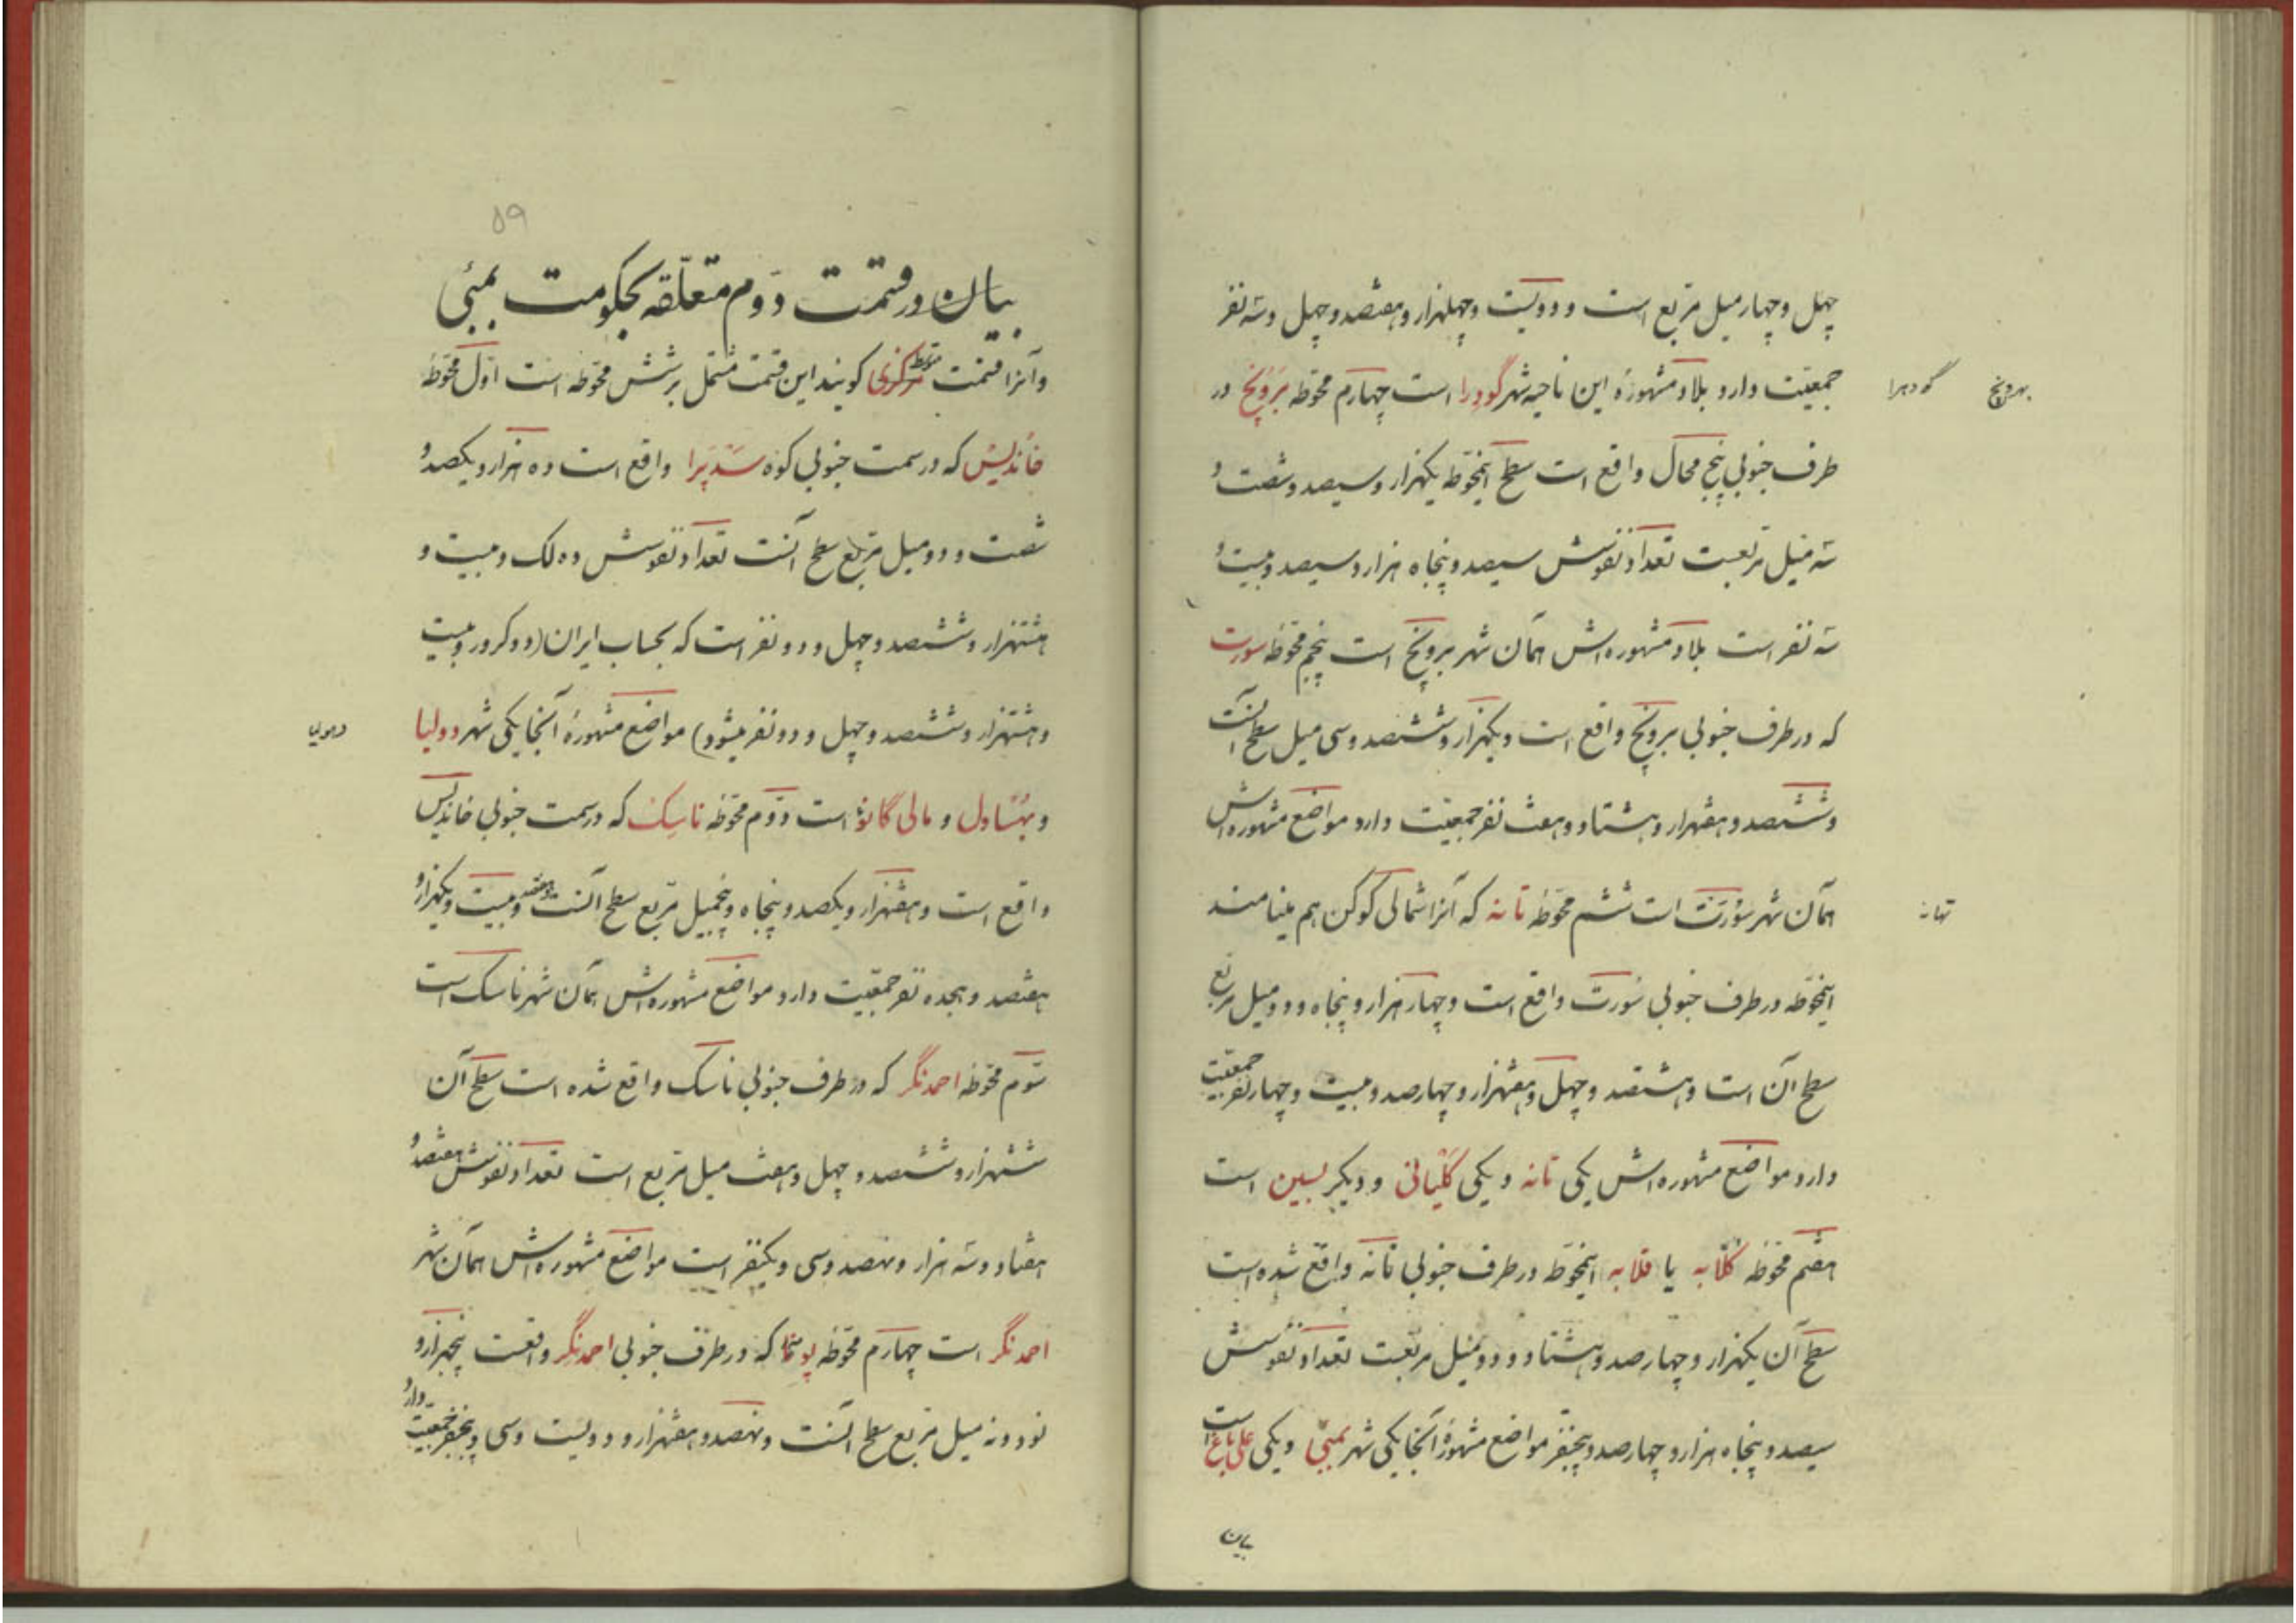 چهل و چهار میل مربع است و دویست و چهلهزار و هفتصد و چهل و سه نفر
جمعیت دارد بلاد مشهورهٔ این ناحیه شهر گودرا است چهارم محوطه برونچ در
گودهرا
بهرونچ
طرف جنوبی پنج محال واقع است سطح اینمحوطه یکهزار و سیصد و شصت و
سه میل مربعست تعداد نفوسش سیصد و پنجاه هزار و سیصد و بیست و
سه نفر است بلاد مشهوره‌اش همان شهر برونچ است پنجم محوطه سورت
که در طرف جنوبی برونچ واقع است و یکهزار و ششصد و سی میل سطح آنست
و ششصد و هفتهزار و هشتاد و هفت نفر جمعیت دارد مواضع مشهوره‌اش
همان شهر سورت است ششم محوطه تانه که آنرا شمالی کوکن هم مینامند
تهانه
اینمحوطه در طرف جنوبی سورت واقع است و چهار هزار و پنجاه و دو میل مربع
سطح آن است و هشتصد و چهل و هفتهزار و چهارصد و بیست و چهار نفر جمعیت
دارد مواضع مشهوره‌اش یکی تانه و یکی کلیانی و دیگر بسین است
هفتم محوطه کلابه یا قلابه اینمحوطه در طرف جنوبی تانه واقع شده است
سطح آن یکهزار و چهارصد و هشتاد و دو میل مربعست تعداد نفوسش
سیصد و پنجاه هزار و چهارصد و پنجنفر مواضع مشهورهٔ آنجا یکی شهر بمبئی و یکی علی باغ است
بیان
۵۹
بیان در قسمت دوم متعلقه بحکومت بمبئی
و آنرا قسمت مرکزی متوسط گویند این قسمت مشتمل بر شش محوطه است اول محوطهٔ
خاندیس که در سمت جنوبی کوه ستپرا واقع است ده هزار و یکصد و
شصت و دو میل مربع سطح آنست تعداد نفوسش ده لک و بیست و
هشتهزار و ششصد و چهل و دو نفر است که بحساب ایران (دو کرور و بیست
و هشتهزار و ششصد و چهل و دو نفر میشود) مواضع مشهورهٔ آنجا یکی شهر دولیا
دهولیا
و بهساول و مالی گانو است دوم محوطه ناسک که در سمت جنوبی خاندیس
واقع است و هفتهزار و یکصد و پنجاه و پنجمیل مربع سطح آنست و هفتصد و بیست و یکهزار و
هفتصد و هجده نفر جمعیت دارد مواضع مشهوره‌اش همان شهر ناسک است
سوم محوطه احمدنگر که در طرف جنوبی ناسک واقع شده است سطح آن
ششهزار و ششصد و چهل و هفت میل مربع است تعداد نفوسش هفتصد و
هفتاد و سه هزار و نهصد و سی و یکنفر است مواضع مشهوره‌اش همان شهر
احمدنگر است چهارم محوطه پونا که در طرف جنوبی احمدنگر واقعست پنجهزار و
نود و نه میل مربع سطح آنست و نهصد و هفتهزار و دویست و سی و پنجنفر جمعیت دارد